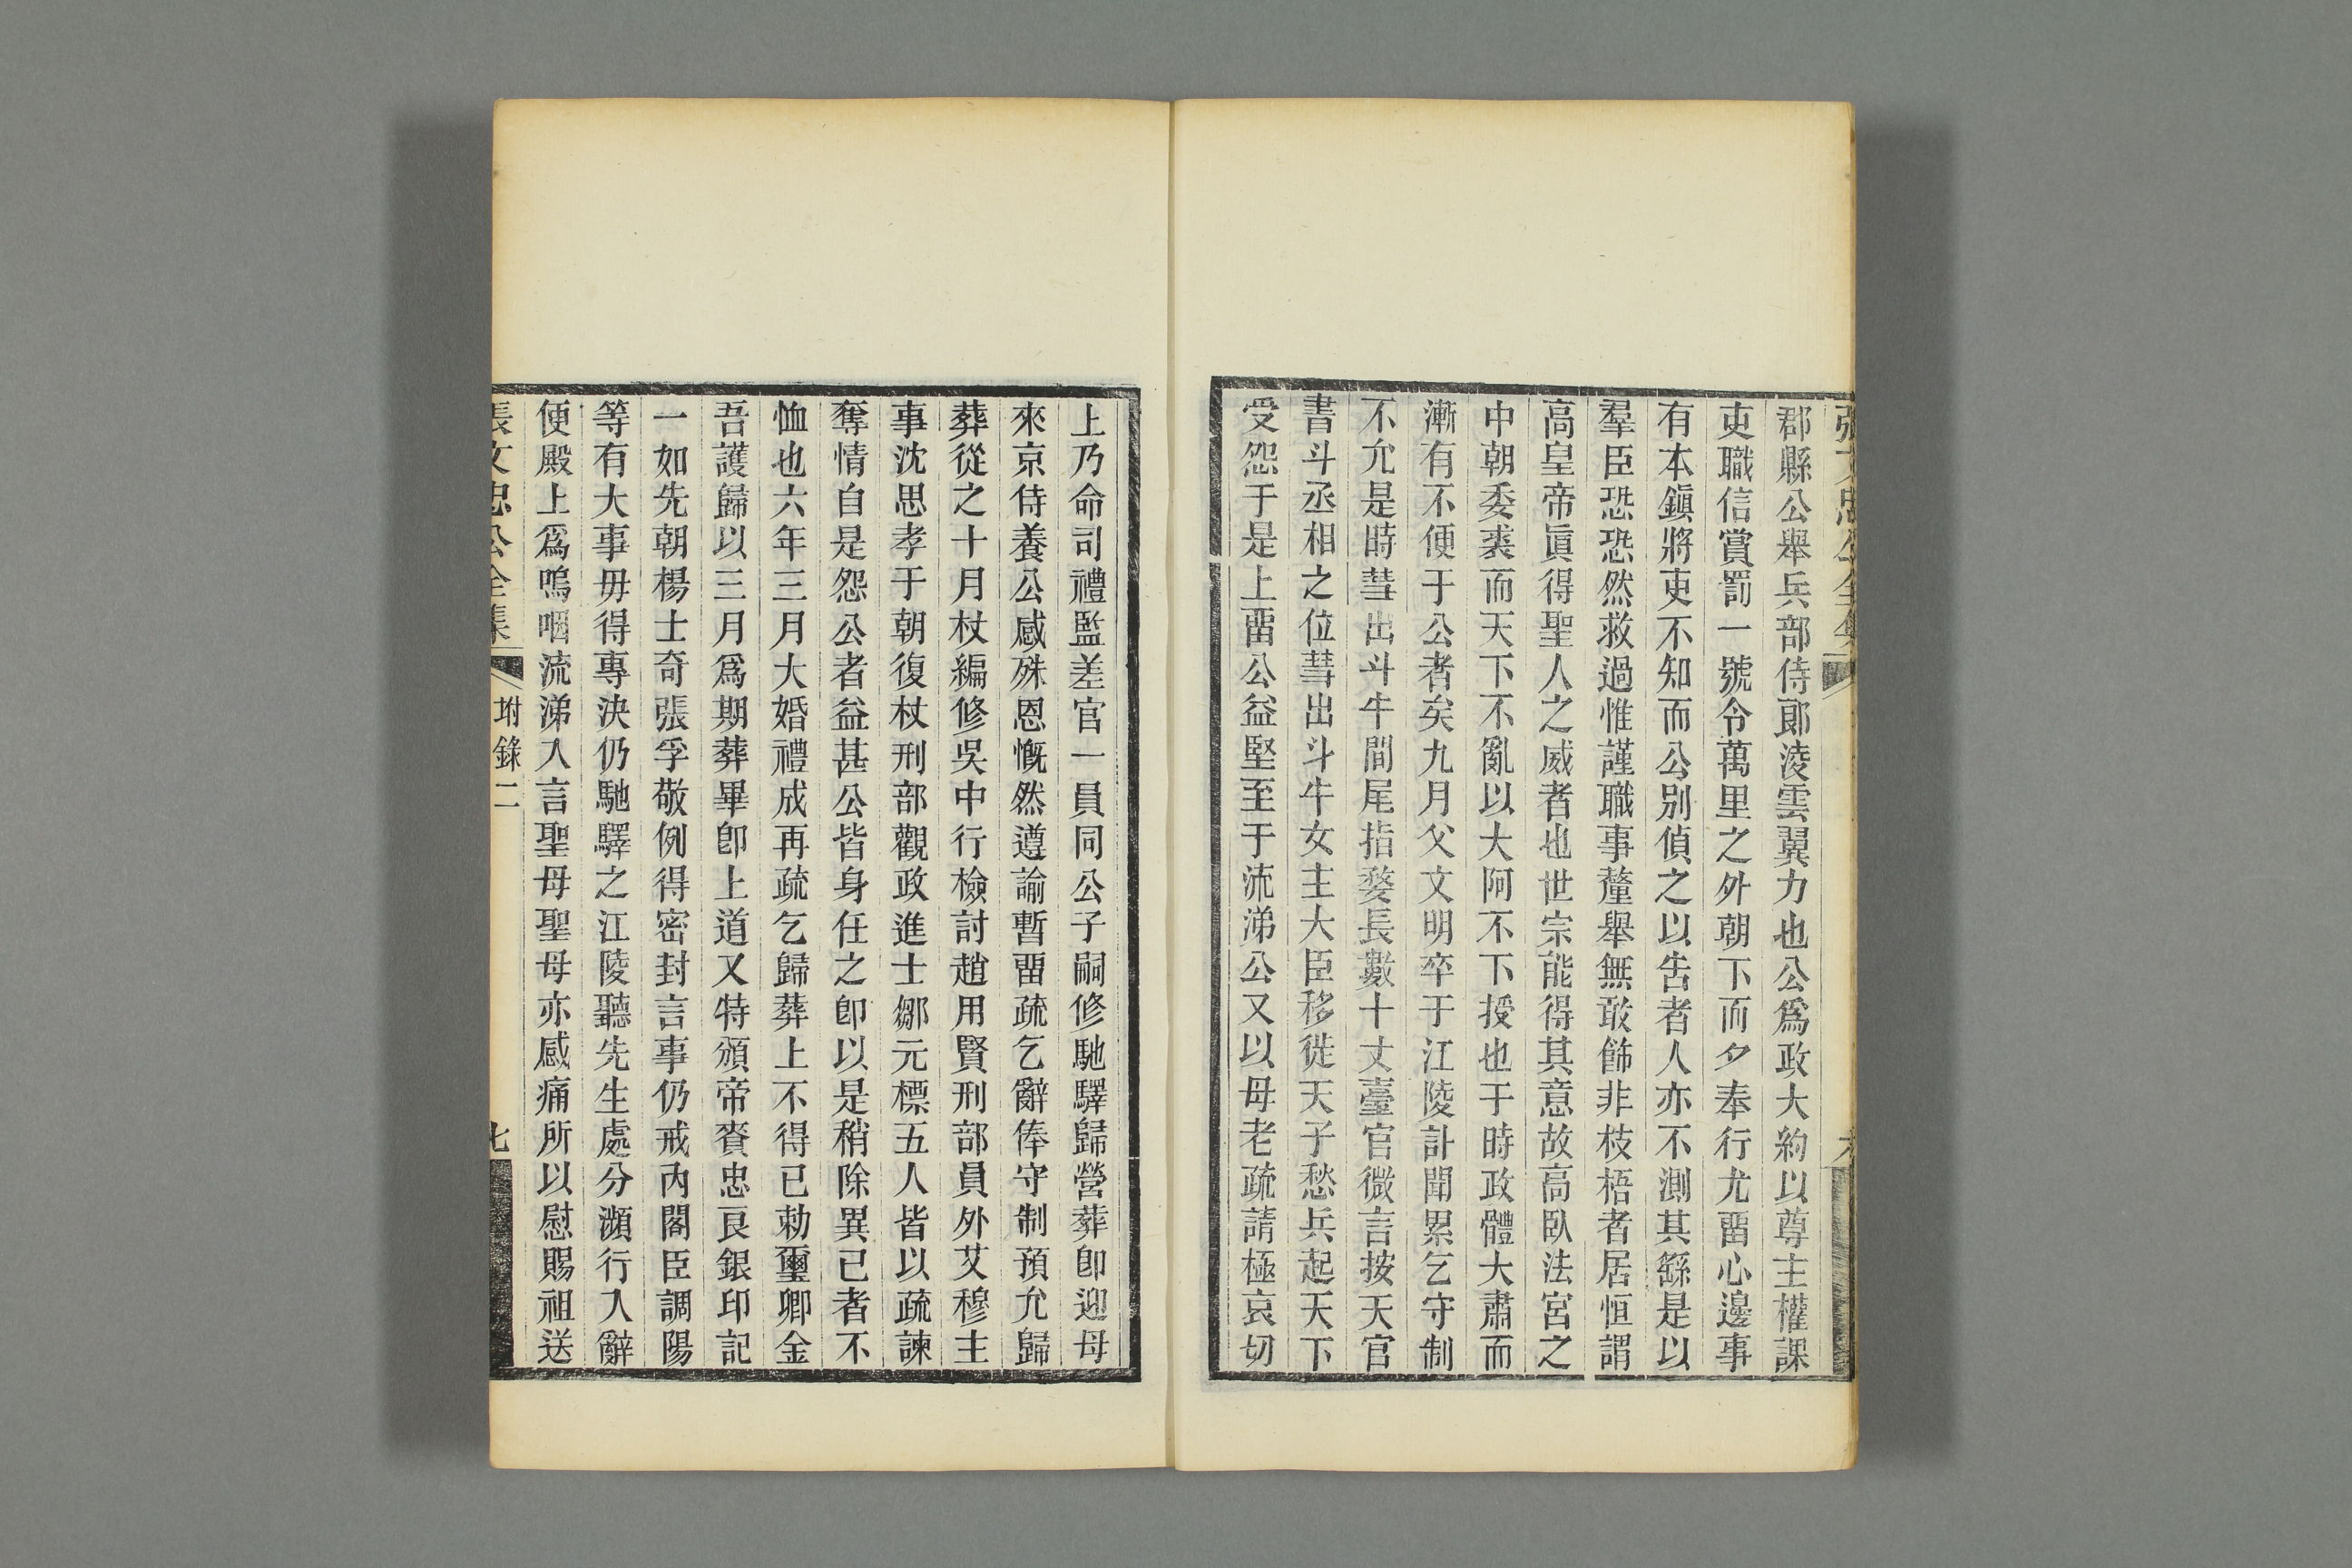 張文忠公全集 六
郡縣公舉兵部侍郞淩雲翼力也公爲政大約以尊主權課
吏職信賞罰一號令萬里之外朝下而夕奉行尤畱心邊事
有本鎭將吏不知而公別偵之以吿者人亦不測其繇是以
羣臣恐恐然救過惟謹職事釐舉無敢飾非枝梧者居恒謂
高皇帝眞得聖人之威者也世宗能得其意故高臥法宮之
中朝委裘而天下不亂以大阿不下授也于時政體大肅而
漸有不便于公者矣九月父文明卒于江陵訃聞累乞守制
不允是時彗出斗牛間尾指婺長數十丈臺官微言按天官
書斗丞相之位彗出斗牛女主大臣移徙天子愁兵起天下
受怨于是上畱公益堅至于流涕公又以母老疏請極哀切
上乃命司禮監差官一員同公子嗣修馳驛歸營葬卽迎母
來京侍養公感殊恩慨然遵諭暫畱疏乞辭俸守制預允歸
葬從之十月杖編修吳中行檢討趙用賢刑部員外艾穆主
事沈思孝于朝復杖刑部觀政進士鄒元標五人皆以疏諫
奪情自是怨公者益甚公皆身任之卽以是稍除異已者不
恤也六年三月大婚禮成再疏乞歸葬上不得已勅璽卿金
吾護歸以三月爲期葬畢卽上道又特頒帝賚忠良銀印記
一如先朝楊士奇張孚敬例得密封言事仍戒內閣臣調陽
等有大事毋得專決仍馳驛之江陵聽先生處分瀕行入辭
便殿上爲嗚咽流涕入言聖母聖母亦感痛所以慰賜祖送
張文忠公全集 坿錄二 七